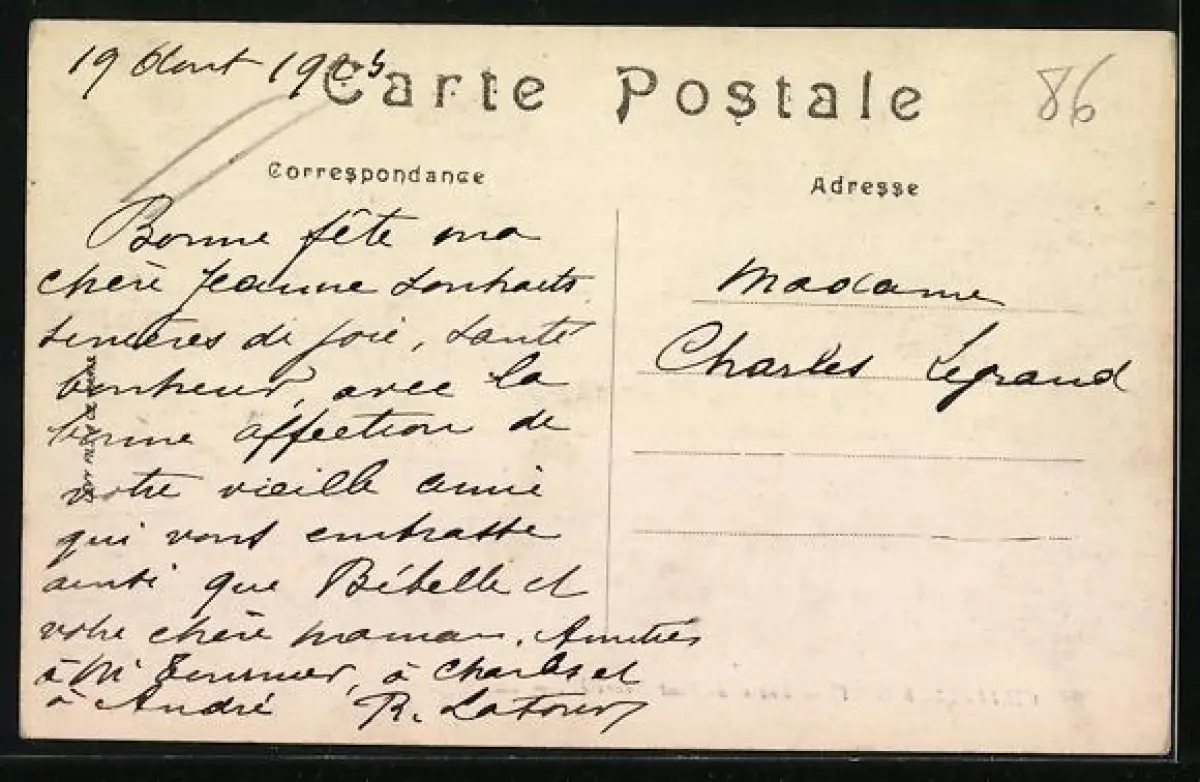 19 Aout 19
Carte Postale
86
Correspondance
Adresse
Bonne fête ma
chère Jeanne souhaits
sincères de joie, santé
bonheur, avec la
bonne affection de
votre vieille amie
qui vous embrasse
ainsi que Bébelle et
votre chère maman. Amitiés
à Mr Fournier, à Charles et
à André R. Latour
Madame
Charles Legrand